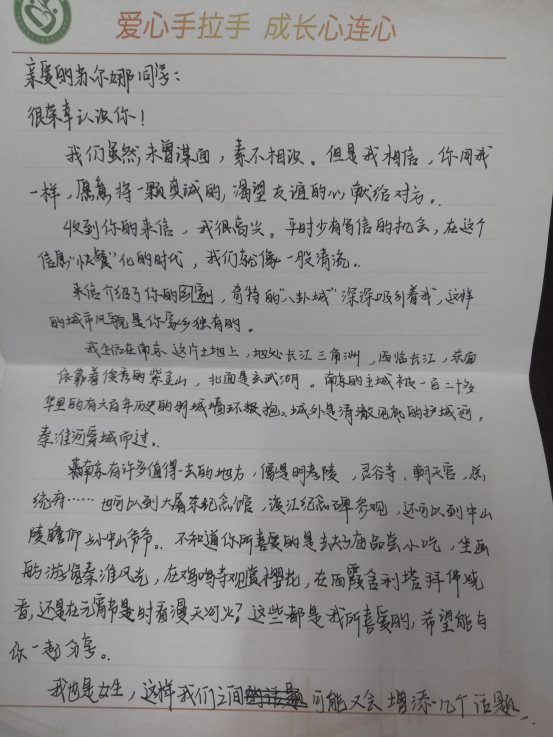 爱心手拉手 成长心连心
亲爱的苏尔娜同学：
很荣幸认识你！
我们虽然未曾谋面，素不相识。但是我相信，你同我
一样，愿意将一颗真诚的，渴望友谊的心献给对方。
收到你的来信，我很高兴。平时少有写信的机会，在这个
信息“快餐”化的时代，我们就像一股清流。
来信介绍了你的家乡，奇特的“八卦城”深深吸引着我，这样
的城市风貌是你家乡独有的。
我生活在南京这片土地上，地处长江三角洲，西临长江，东面
依靠着俊秀的紫金山，北面是玄武湖。南京的主城被一百二十多
华里的有六百年历史的明城墙环抱。城外是清澈见底的护城河，
秦淮河穿城而过。
南京有许多值得一去的地方，像是明孝陵，灵谷寺，朝天宫，总
统府……也可以到大屠杀纪念馆，滨江纪念碑参观，还可以到中山
陵瞻仰孙中山爷爷。不知道你所喜爱的是去夫子庙品尝小吃，坐画
舫游览秦淮风光，在鸡鸣寺观赏樱花，在栖霞舍利塔拜佛烧
香，还是在元宵节时看漫天灯火？这些都是我所喜爱的，希望能与
你一起分享。
我也是女生，这样我们之间可能又会增添几个话题